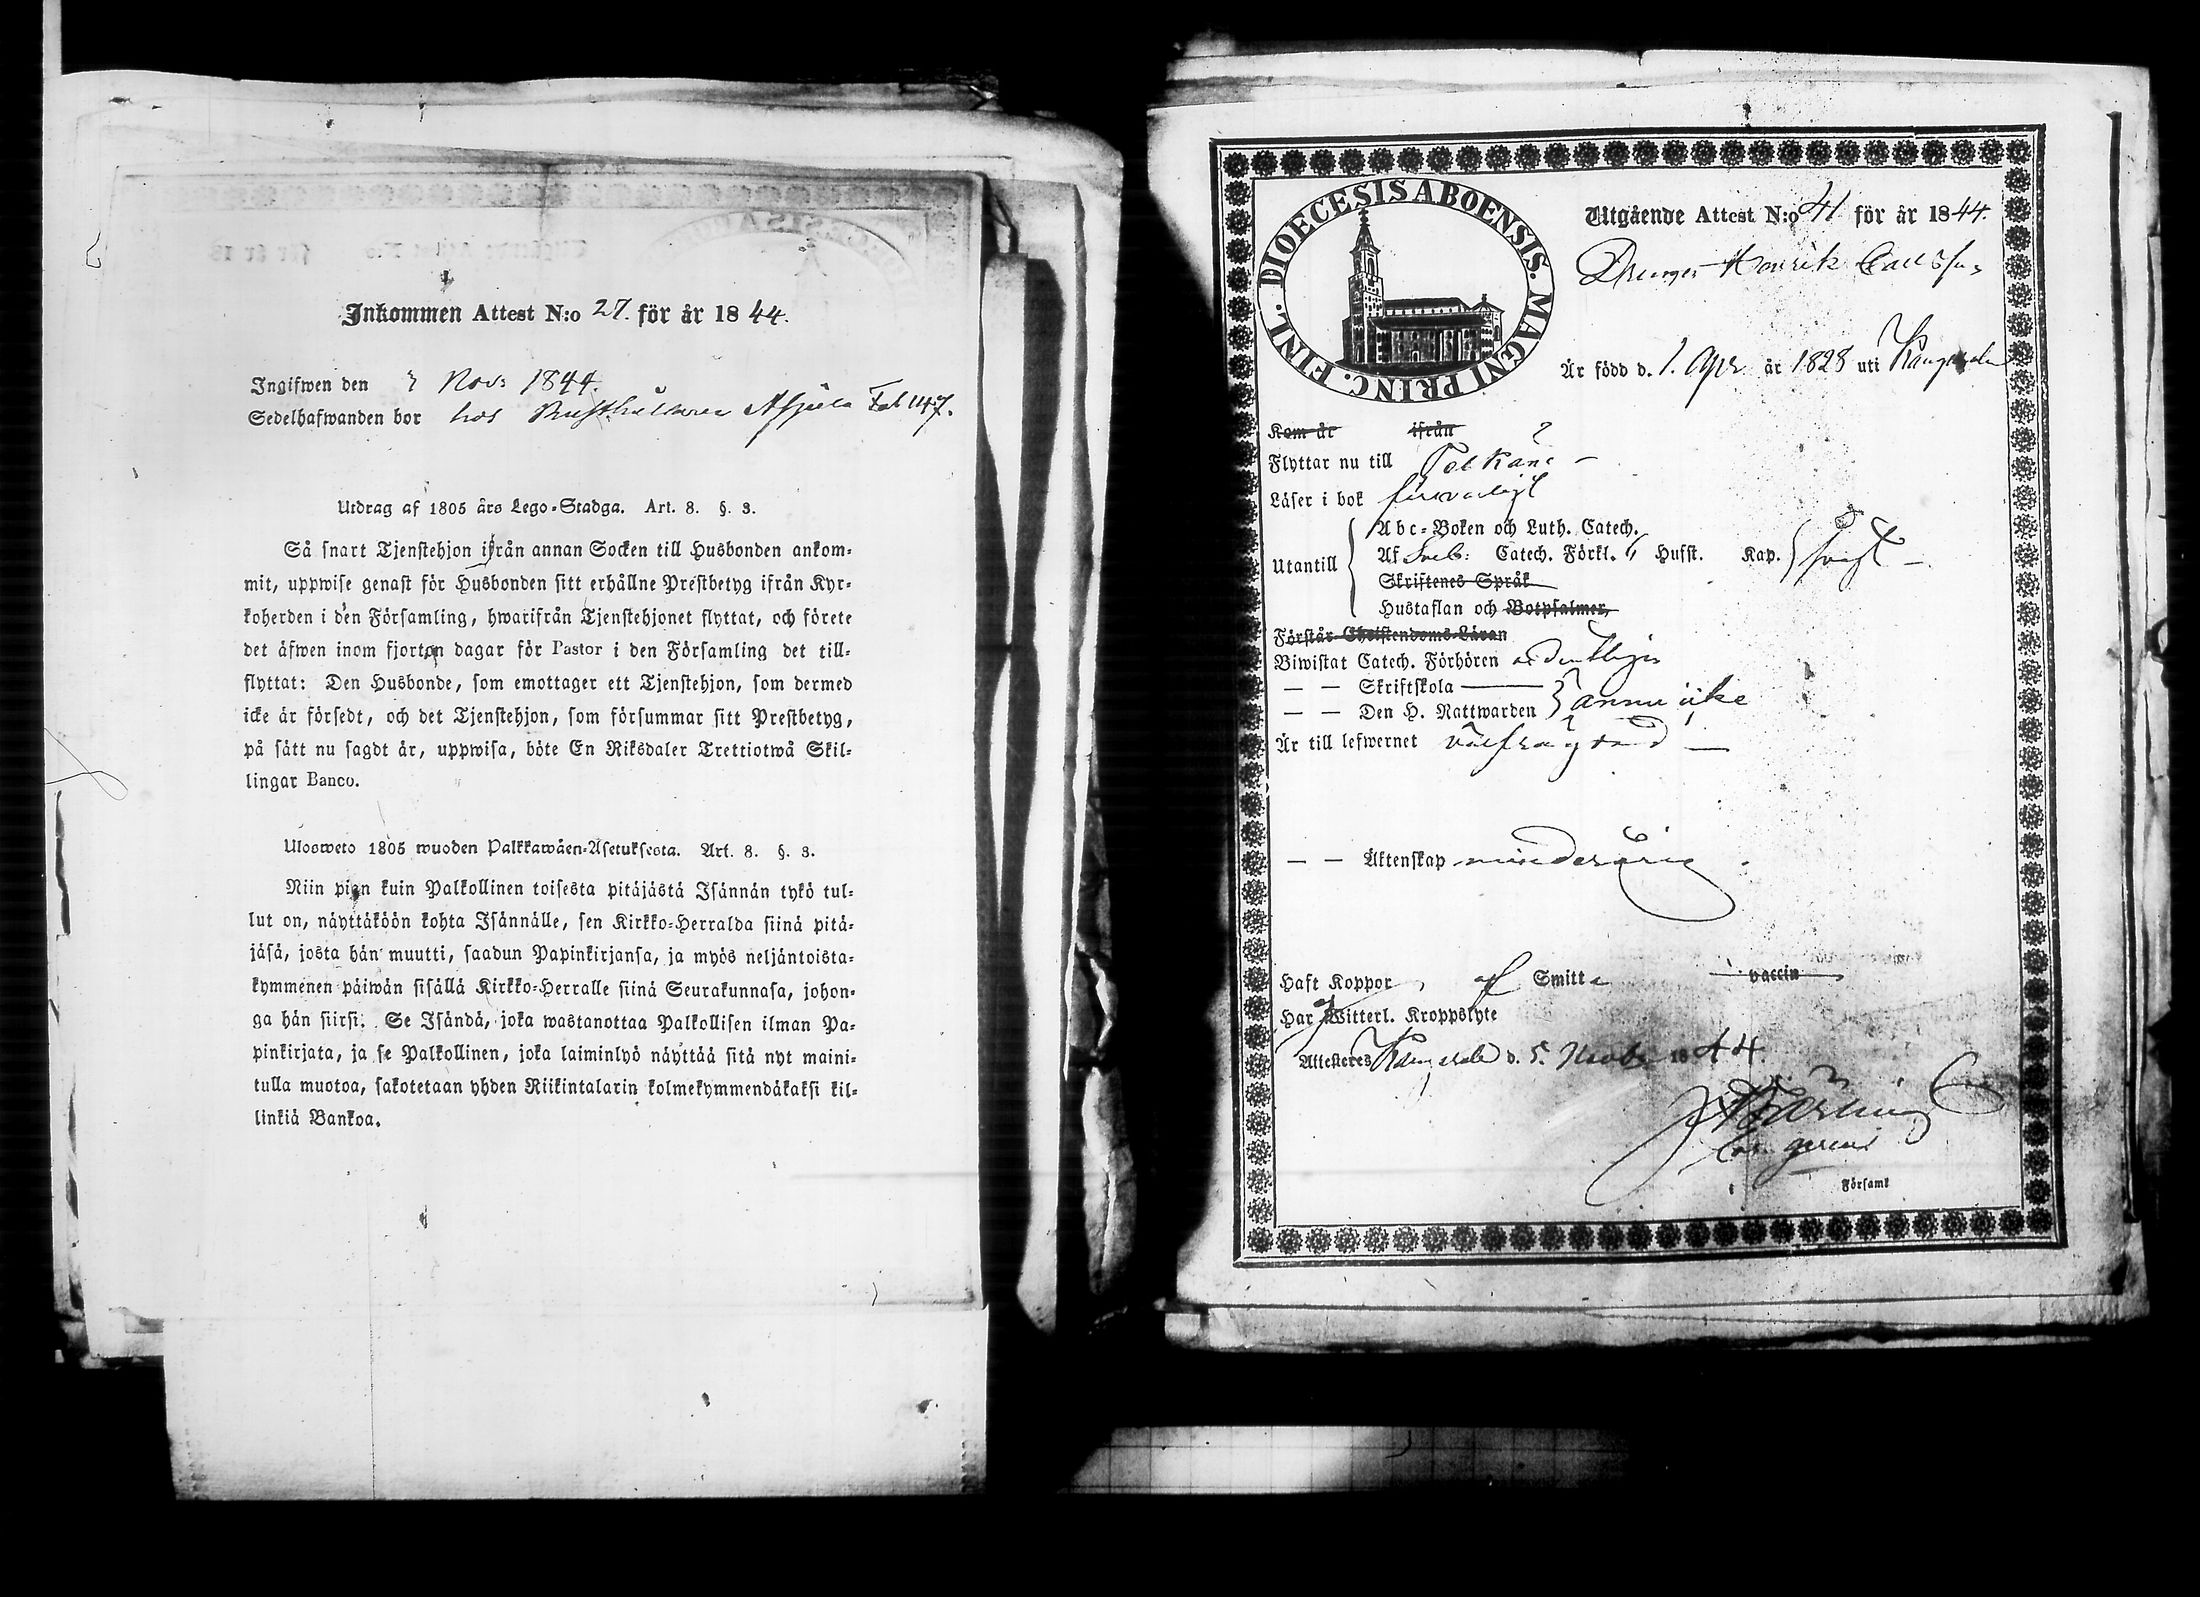 Inkommen Attest N:o 27. för år 1844.
Ingifwen den Nov: 1844.
Sedelhafwanden bor hos Rusthållaren Fol 147.
Utdrag af 1805 års Lego-Stadga. Art. 8. §. 3.
Så snart Tjenstehjon ifrån annan Socken till Husbonden ankom-
mit, uppwise genast för Husbonden sitt erhållne Prestbetyg ifrån Kyr-
koherden i den Församling, hwarifrån Tjenstehjonet flyttat, och förete
det äfwen inom fjorton dagar för Pastor i den Församling det till-
flyttat: Den Husbonde, som emottager ett Tjenstehjon, som dermed
icke är försedt, och det Tjenstehjon, som försummar sitt Prestbetyg,
på sätt nu sagdt är, uppwisa, böte En Riksdaler Trettiotwå Skil-
lingar Banco.
Ulosweto 1805 wuoden Palkkawäen-Asetuksesta. Art. 8. §. 3.
Niin pian kuin Palkollinen toisesta pitäjästä Isännän tykö tul-
lut on, näyttäköön kohta Isännälle, sen Kirkko-Herralda siinä pitä-
jäsä, josta hän muutti, saadun Papinkirjansa, ja myös neljäntoista-
kymmenen päiwän sisällä Kirkko-Herralle siinä Seurakunnasa, johon-
ga hän siirsi. Se Isändä, joka wastanottaa Palkollisen ilman Pa-
pinkirjata, ja se Palkollinen, joka laiminlyö näyttää sitä nyt maini-
tulla muotoa, sakotetaan yhden Riikintalarin kolmekymmendäkaksi kil-
linkiä Bankoa.
DIOECESIS ABOENSIS. MAGNI PRINC. FINL.
Utgående Attest N:o 41 för år 1844.
Drengen Henrik Carlsson
Är född d. 1. Apr. år 1828 uti Kangasala
Kom år ifrån
Flyttar nu till Pelkäne
Läser i bok försvarligt
Abc-Boken och Luth. Catech.
Utantill Af Sveb: Catech. Förkl. Husst. Kap. svagt
Skriftenes Språk
Hustaflan och Botpsalmer,
Förstår Christendoms-Läran
Biwistat Catech. Förhören ordentligen
— — Skriftskola
— — Den H. Nattwarden ännu icke
Är till lefwernet välfrägdad
— — Äktenskap minderårig
Haft Koppor af Smitta vaccin
Har ej Witterl. Kroppslyte
Attesteras Kangasala d. 5. Novbr 1844.
Församl